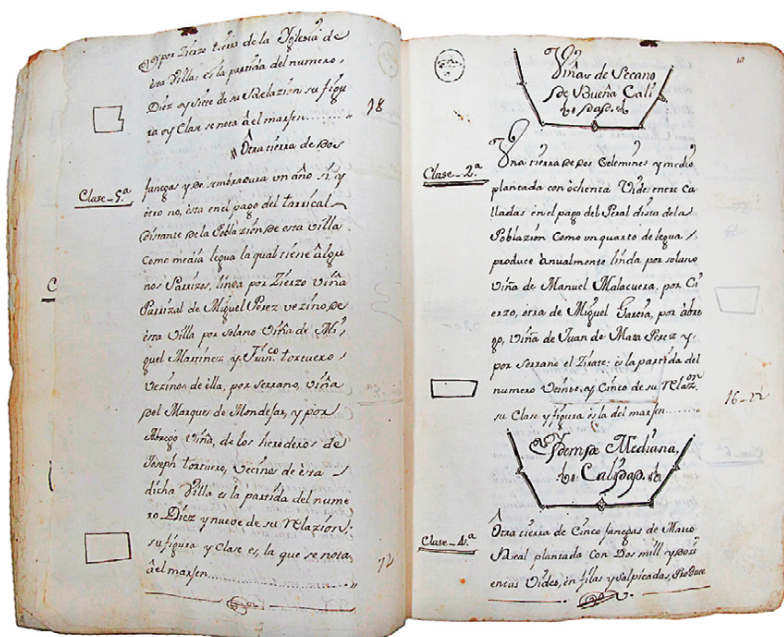 y por Zierzo tierra de la Yglesia de
esta Villa: es la partida del numero
Diez y siete de su Relazion su figu
ra y Clase se nota â el marxen
18
Otra tierra de dos
Clase-5.ª
fanegas y de sembradura un año si, y
otro no, esta en el pago del tarrical
distante de la Poblazión de esta villa
como media legua la qual tiene âlgu
nos Parrizos, linda por Zierzo viña
Parrizal de Miguel Perez vezino de
esta Villa por solano Viña de Mi
guel Martinez, y Fran.co tortuero
vezinos de ella, por serrano, viña
del Marques de Mondejar, y por
Abrego Viña, de los herederos de
Joseph tortuero, vecinos de esta
dicha Villa es la partida del nume
ro Diez y nueve de su relazion:
su figura y Clase es, la que se nota
âel marxen
12
Viñas de Secano
de Buena Cali
dad
Clase-2.ª
Una tierra de dos Zelemines y medio
plantada con ôchenta Vides entre Ca
lladas en el pago del Peral dista de la
Poblazión Como un quarto de legua
produce anualmente linda por solano
viña de Manuel Malacuera, por Ci
erzo, otra de Miguel Garcia, por âbre
go, viña de Juan de Mata Perez y
por serrano el Zirate: es la partida del
numero Veinte, y Cinco de su Relaz.on
su Clase y figura es la del marxen
16-22
Ydem de Mediana
Calidad
Clase-4.ª
Otra tierra de Cinco fanegas de Marco
Real plantada con Dos mill y dosci
entas Vides, en filas y salpicadas, Produce